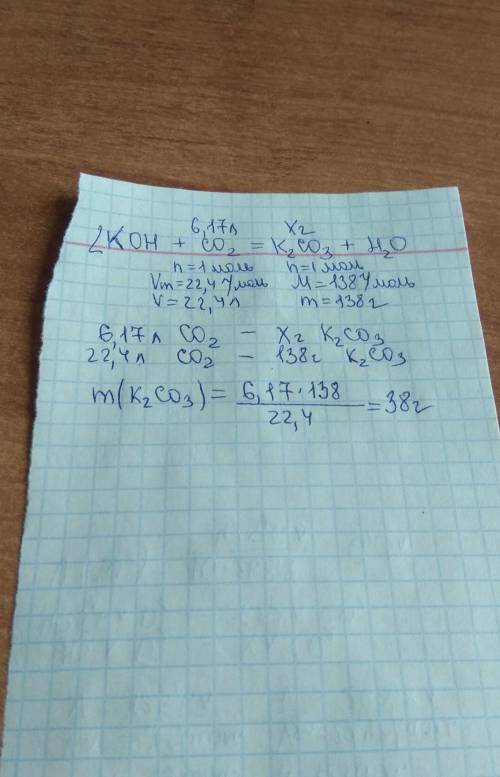 6,17л xг
2KOH + CO₂ = K₂CO₃ + H₂O
n=1моль n=1моль
Vm=22,4 л/моль M=138г/моль
V=22,4л m=138г
6,17л CO₂ – xг K₂CO₃
22,4л CO₂ – 138г K₂CO₃
m(K₂CO₃) = 6,17·138 / 22,4 = 38г